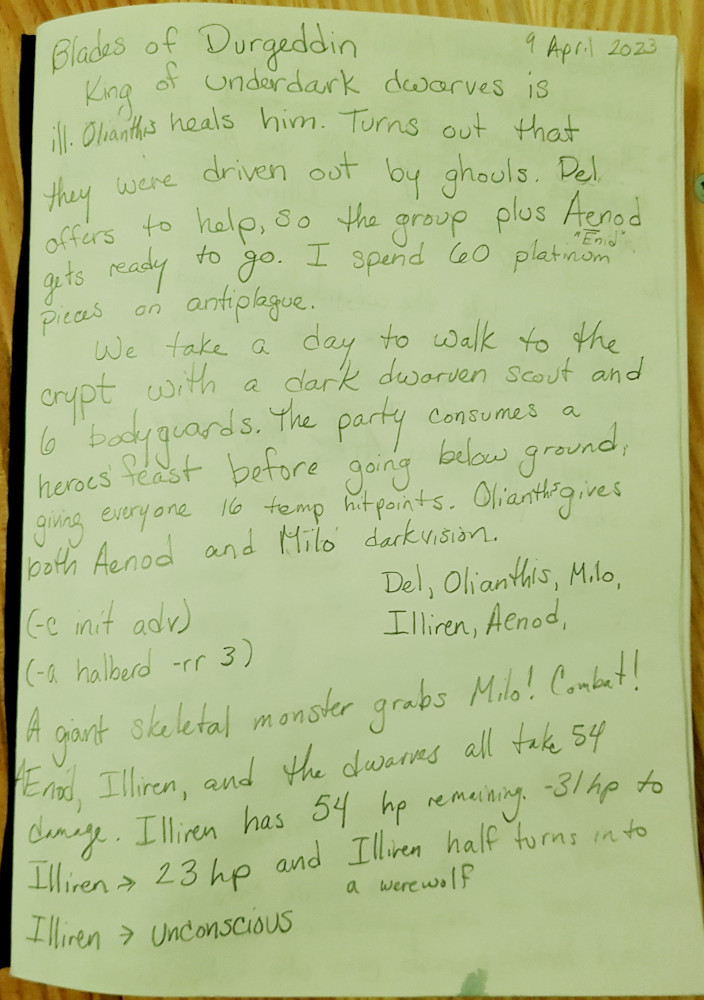 Blades of Durgeddin 9 April 2023
King of underdark dwarves is
ill. Olianthis heals him. Turns out that
they were driven out by ghouls. Del
offers to help, so the group plus Aenod
"Enid"
gets ready to go. I spend 60 platinum
pieces on antiplague.
We take a day to walk to the
crypt with a dark dwarven scout and
6 bodyguards. The party consumes a
heroes' feast before going below ground,
giving everyone 16 temp hitpoints. Olianthis gives
both Aenod and Milo darkvision.
Del, Olianthis, Milo,
(-c init adv)
Illiren, Aenod,
(-a halberd -rr 3)
A giant skeletal monster grabs Milo! Combat!
AEnod, Illiren, and the dwarves all take 54
damage. Illiren has 54 hp remaining. -31 hp to
Illiren → 23 hp and Illiren half turns into
a werewolf
Illiren → unconscious